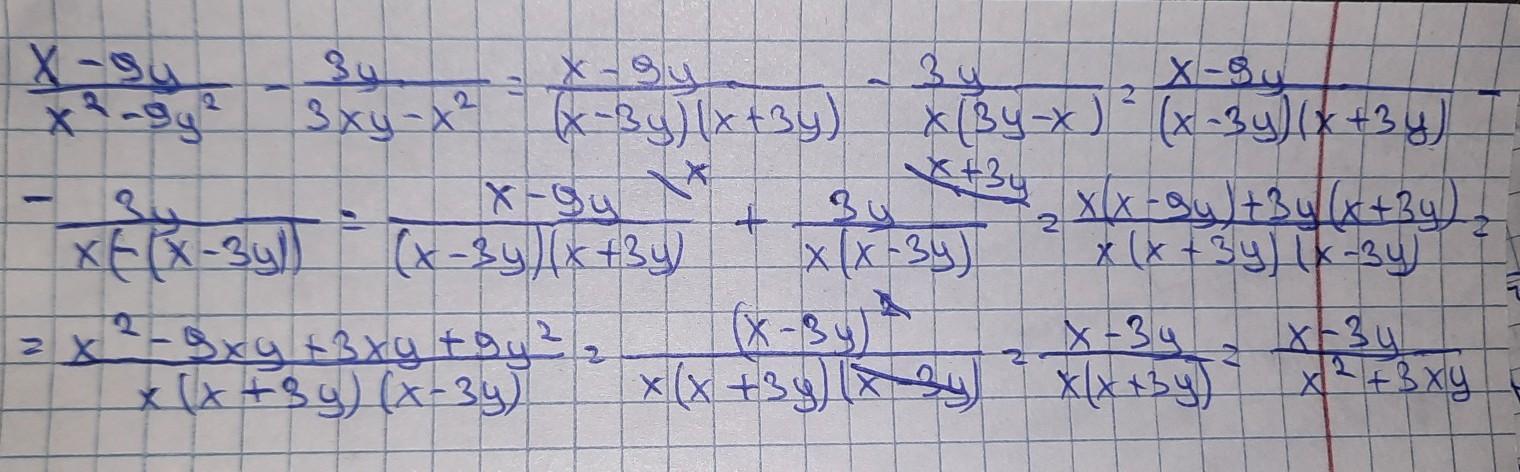 (x - 9y)/(x² - 9y²) - 3y/(3xy - x²) = (x - 9y)/((x - 3y)(x + 3y)) - 3y/(x(3y - x)) = (x - 9y)/((x - 3y)(x + 3y)) -
- 3y/(x(-(x - 3y))) = (x - 9y)\x/((x - 3y)(x + 3y)) + 3y\x + 3y/(x(x - 3y)) = (x(x - 9y) + 3y(x + 3y))/(x(x + 3y)(x - 3y)) =
= (x² - 9xy + 3xy + 9y²)/(x(x + 3y)(x - 3y)) = (x - 3y)²/(x(x + 3y)(x - 3y)) = (x - 3y)/(x(x + 3y)) = (x - 3y)/(x² + 3xy)